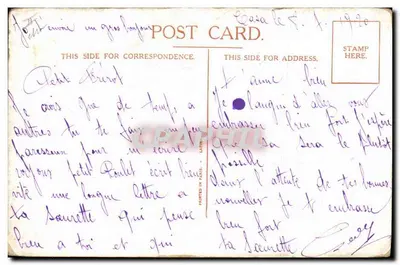 envoie un gros bonjour
Casa le 8. 1. 1920
POST CARD.
THIS SIDE FOR CORRESPONDENCE.
THIS SIDE FOR ADDRESS.
STAMP
HERE.
Petit
Je crois que de temps a
autres tu te fais un peu
paresseux pour m'écrire
petit Poulet écrit bien
vite une longue lettre a
ta Sœurette qui pense
bien a toi et qui
t'aime bien
Je languis d'aller vous
embrasser bien fort j'espère
que sa sera le plutôt
possible
dans l'attente de tes bonnes
nouvelles je t'embrasse
bien fort
ta Sœurette